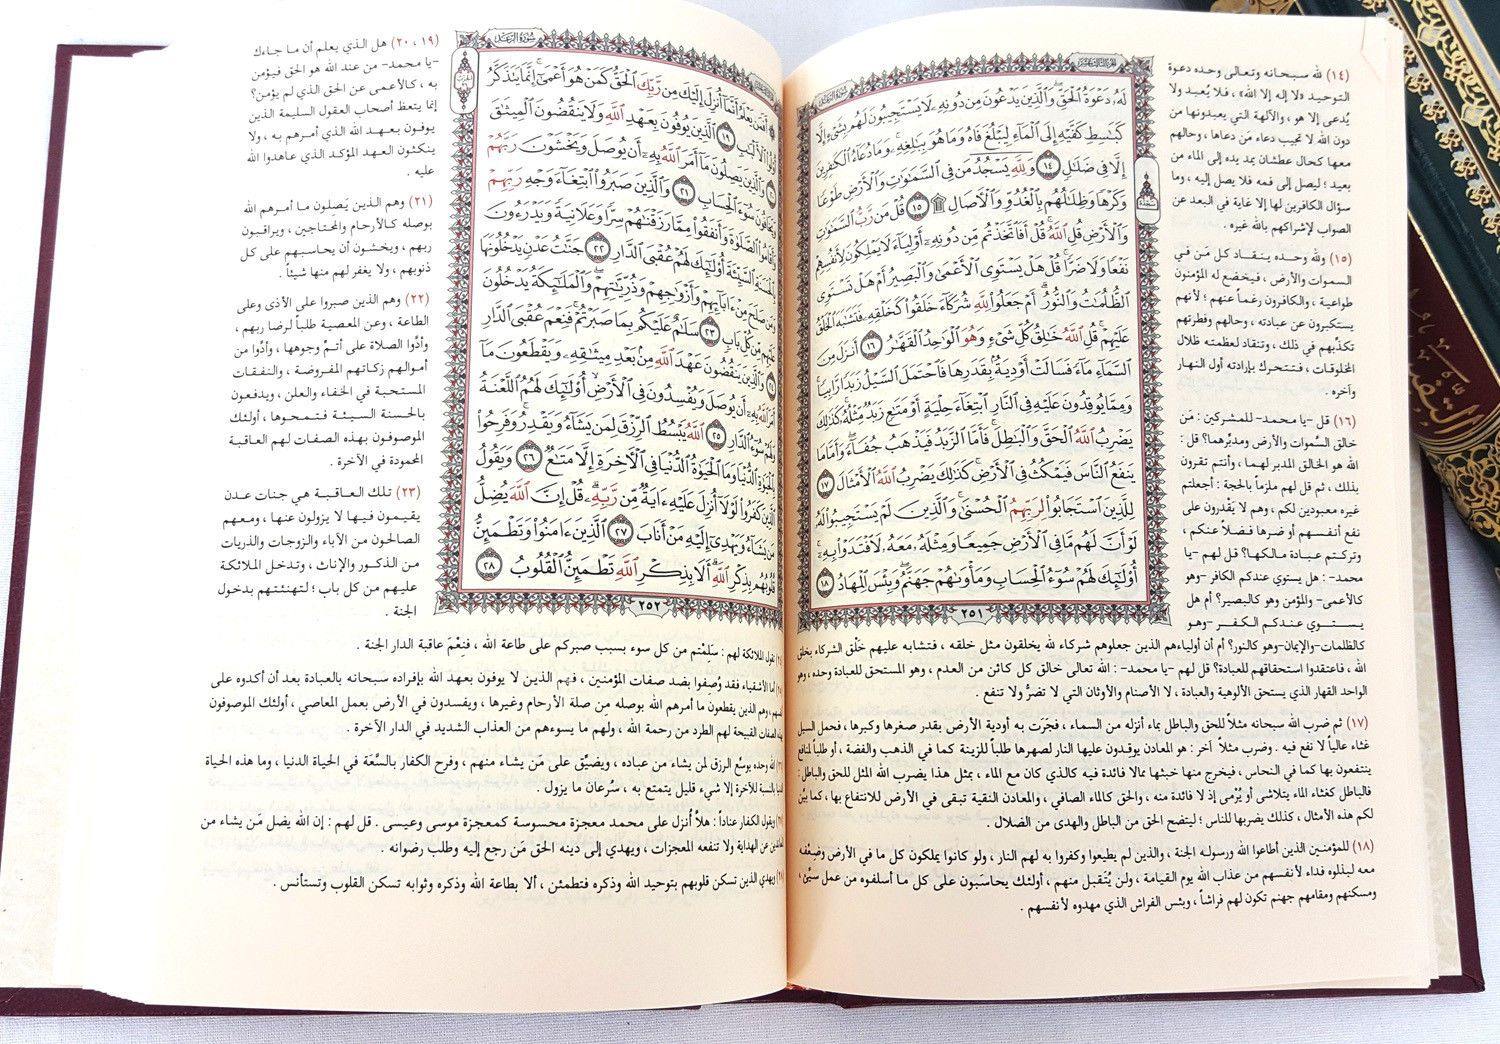 لَهُۥ دَعۡوَةُ ٱلۡحَقِّۖ وَٱلَّذِينَ يَدۡعُونَ مِن دُونِهِۦ لَا يَسۡتَجِيبُونَ لَهُم بِشَيۡءٍ إِلَّا
كَبَٰسِطِ كَفَّيۡهِ إِلَى ٱلۡمَآءِ لِيَبۡلُغَ فَاهُ وَمَا هُوَ بِبَٰلِغِهِۦۚ وَمَا دُعَآءُ ٱلۡكَٰفِرِينَ
إِلَّا فِي ضَلَٰلٖ ١٤ وَلِلَّهِۤ يَسۡجُدُ مَن فِي ٱلسَّمَٰوَٰتِ وَٱلۡأَرۡضِ طَوۡعٗا
وَكَرۡهٗا وَظِلَٰلُهُم بِٱلۡغُدُوِّ وَٱلۡأٓصَالِ۩ ١٥ قُلۡ مَن رَّبُّ ٱلسَّمَٰوَٰتِ
وَٱلۡأَرۡضِ قُلِ ٱللَّهُۚ قُلۡ أَفَٱتَّخَذۡتُم مِّن دُونِهِۦٓ أَوۡلِيَآءَ لَا يَمۡلِكُونَ لِأَنفُسِهِمۡ
نَفۡعٗا وَلَا ضَرّٗاۚ قُلۡ هَلۡ يَسۡتَوِي ٱلۡأَعۡمَىٰ وَٱلۡبَصِيرُ أَمۡ هَلۡ تَسۡتَوِي
ٱلظُّلُمَٰتُ وَٱلنُّورُۗ أَمۡ جَعَلُواْ لِلَّهِ شُرَكَآءَ خَلَقُواْ كَخَلۡقِهِۦ فَتَشَٰبَهَ ٱلۡخَلۡقُ
عَلَيۡهِمۡۚ قُلِ ٱللَّهُ خَٰلِقُ كُلِّ شَيۡءٖ وَهُوَ ٱلۡوَٰحِدُ ٱلۡقَهَّٰرُ ١٦ أَنزَلَ مِنَ
ٱلسَّمَآءِ مَآءٗ فَسَالَتۡ أَوۡدِيَةُۢ بِقَدَرِهَا فَٱحۡتَمَلَ ٱلسَّيۡلُ زَبَدٗا رَّابِيٗاۖ
وَمِمَّا يُوقِدُونَ عَلَيۡهِ فِي ٱلنَّارِ ٱبۡتِغَآءَ حِلۡيَةٍ أَوۡ مَتَٰعٖ زَبَدٞ مِّثۡلُهُۥۚ كَذَٰلِكَ
يَضۡرِبُ ٱللَّهُ ٱلۡحَقَّ وَٱلۡبَٰطِلَۚ فَأَمَّا ٱلزَّبَدُ فَيَذۡهَبُ جُفَآءٗۖ وَأَمَّا مَا
يَنفَعُ ٱلنَّاسَ فَيَمۡكُثُ فِي ٱلۡأَرۡضِۚ كَذَٰلِكَ يَضۡرِبُ ٱللَّهُ ٱلۡأَمۡثَالَ ١٧
لِلَّذِينَ ٱسۡتَجَابُواْ لِرَبِّهِمُ ٱلۡحُسۡنَىٰۚ وَٱلَّذِينَ لَمۡ يَسۡتَجِيبُواْ لَهُۥ
لَوۡ أَنَّ لَهُم مَّا فِي ٱلۡأَرۡضِ جَمِيعٗا وَمِثۡلَهُۥ مَعَهُۥ لَٱفۡتَدَوۡاْ بِهِۦٓۚ
أُوْلَٰٓئِكَ لَهُمۡ سُوٓءُ ٱلۡحِسَابِ وَمَأۡوَىٰهُمۡ جَهَنَّمُۖ وَبِئۡسَ ٱلۡمِهَادُ ١٨
٢٥١
(١٤) لله سبحانه وتعالى وحده دعوة
التوحيد «لا إله إلا الله» ، فلا يُعبد ولا
يُدعى إلا هو ، والآلهة التي يعبدونها من
دون الله لا تجيب دعاء مَن دعاها ، وحالهم
معها كحال عطشان يمد يده إلى الماء من
بعيد ؛ ليصل إلى فمه فلا يصل إليه ، وما
سؤال الكافرين لها إلا غاية في البعد عن
الصواب لإشراكهم بالله غيره .
(١٥) ولله وحده ينقاد كل مَن في
السموات والأرض ، فيخضع له المؤمنون
طواعية ، والكافرون رغماً عنهم ؛ لأنهم
يستكبرون عن عبادته ، وحالهم وفطرتهم
تكذِّبهم في ذلك ، وتنقاد لعظمته ظلال
المخلوقات ، فتتحرك بإرادته أول النهار
وآخره .
(١٦) قل -يا محمد- للمشركين : مَن
خالق السَّموات والأرض ومدبِّرهما؟ قل :
الله هو الخالق المدبر لهما ، وأنتم تقرون
بذلك ، ثم قل لهم ملزماً بالحجة : أجعلتم
غيره معبودين لكم ، وهم لا يَقْدرون على
نفع أنفسهم أو ضرها فضلاً عنكم ،
وتركتم عبادة مالكها؟ قل لهم -يا
محمد- : هل يستوي عندكم الكافر -وهو
كالأعمى- والمؤمن وهو كالبصير؟ أم هل
يستوي عندكم الكفر -وهو
كالظلمات- والإيمان -وهو كالنور؟ أم أن أولياءهم الذين جعلوهم شركاء لله يخلقون مثل خلقه ، فتشابه عليهم خَلْق الشركاء بخلق
الله ، فاعتقدوا استحقاقهم للعبادة؟ قل لهم -يا محمد- : الله تعالى خالق كل كائن من العدم ، وهو المستحق للعبادة وحده ، وهو
الواحد القهار الذي يستحق الألوهية والعبادة ، لا الأصنام والأوثان التي لا تضرُّ ولا تنفع .
(١٧) ثم ضرب الله سبحانه مثلاً للحق والباطل بماء أنزله من السماء ، فجَرَت به أودية الأرض بقدر صغرها وكبرها ، فحمل السيل
غثاء عالياً لا نفع فيه . وضرب مثلاً آخر : هو المعادن يوقِدون عليها النار لصهرها طلباً للزينة كما في الذهب والفضة ، أو طلباً لمنافع
ينتفعون بها كما في النحاس ، فيخرج منها خبثها مما لا فائدة فيه كالذي كان مع الماء ، بمثل هذا يضرب الله المثل للحق والباطل :
فالباطل كغثاء الماء يتلاشى أو يُرْمى إذ لا فائدة منه ، والحق كالماء الصافي ، والمعادن النقية تبقى في الأرض للانتفاع بها ، كما بيَّن
لكم هذه الأمثال ، كذلك يضربها للناس ؛ ليتضح الحق من الباطل والهدى من الضلال .
(١٨) للمؤمنين الذين أطاعوا الله ورسوله الجنة ، والذين لم يطيعوا وكفروا به لهم النار ، ولو كانوا يملكون كل ما في الأرض وضِعْفه
معه لبذلوه فداء لأنفسهم من عذاب الله يوم القيامة ، ولن يُتقبل منهم ، أولئك يحاسَبون على كل ما أسلفوه من عمل سيِّئ ،
ومسكنهم ومقامهم جهنم تكون لهم فراشاً ، وبئس الفراش الذي مهدوه لأنفسهم .
سُورَةُ الرَّعۡدِ
أَفَمَن يَعۡلَمُ أَنَّمَآ أُنزِلَ إِلَيۡكَ مِن رَّبِّكَ ٱلۡحَقُّ كَمَنۡ هُوَ أَعۡمَىٰٓۚ إِنَّمَا يَتَذَكَّرُ
أُوْلُواْ ٱلۡأَلۡبَٰبِ ١٩ ٱلَّذِينَ يُوفُونَ بِعَهۡدِ ٱللَّهِ وَلَا يَنقُضُونَ ٱلۡمِيثَٰقَ
٢٠ وَٱلَّذِينَ يَصِلُونَ مَآ أَمَرَ ٱللَّهُ بِهِۦٓ أَن يُوصَلَ وَيَخۡشَوۡنَ رَبَّهُمۡ
وَيَخَافُونَ سُوٓءَ ٱلۡحِسَابِ ٢١ وَٱلَّذِينَ صَبَرُواْ ٱبۡتِغَآءَ وَجۡهِ رَبِّهِمۡ
وَأَقَامُواْ ٱلصَّلَوٰةَ وَأَنفَقُواْ مِمَّا رَزَقۡنَٰهُمۡ سِرّٗا وَعَلَانِيَةٗ وَيَدۡرَءُونَ
بِٱلۡحَسَنَةِ ٱلسَّيِّئَةَ أُوْلَٰٓئِكَ لَهُمۡ عُقۡبَى ٱلدَّارِ ٢٢ جَنَّٰتُ عَدۡنٖ يَدۡخُلُونَهَا
وَمَن صَلَحَ مِنۡ ءَابَآئِهِمۡ وَأَزۡوَٰجِهِمۡ وَذُرِّيَّٰتِهِمۡۖ وَٱلۡمَلَٰٓئِكَةُ يَدۡخُلُونَ
عَلَيۡهِم مِّن كُلِّ بَابٖ ٢٣ سَلَٰمٌ عَلَيۡكُم بِمَا صَبَرۡتُمۡۚ فَنِعۡمَ عُقۡبَى ٱلدَّارِ
٢٤ وَٱلَّذِينَ يَنقُضُونَ عَهۡدَ ٱللَّهِ مِنۢ بَعۡدِ مِيثَٰقِهِۦ وَيَقۡطَعُونَ مَآ
أَمَرَ ٱللَّهُ بِهِۦٓ أَن يُوصَلَ وَيُفۡسِدُونَ فِي ٱلۡأَرۡضِ أُوْلَٰٓئِكَ لَهُمُ ٱللَّعۡنَةُ
وَلَهُمۡ سُوٓءُ ٱلدَّارِ ٢٥ ٱللَّهُ يَبۡسُطُ ٱلرِّزۡقَ لِمَن يَشَآءُ وَيَقۡدِرُۚ وَفَرِحُواْ
بِٱلۡحَيَوٰةِ ٱلدُّنۡيَا وَمَا ٱلۡحَيَوٰةُ ٱلدُّنۡيَا فِي ٱلۡأٓخِرَةِ إِلَّا مَتَٰعٞ ٢٦ وَيَقُولُ
ٱلَّذِينَ كَفَرُواْ لَوۡلَآ أُنزِلَ عَلَيۡهِ ءَايَةٞ مِّن رَّبِّهِۦۚ قُلۡ إِنَّ ٱللَّهَ يُضِلُّ
مَن يَشَآءُ وَيَهۡدِيٓ إِلَيۡهِ مَنۡ أَنَابَ ٢٧ ٱلَّذِينَ ءَامَنُواْ وَتَطۡمَئِنُّ
قُلُوبُهُم بِذِكۡرِ ٱللَّهِۗ أَلَا بِذِكۡرِ ٱللَّهِ تَطۡمَئِنُّ ٱلۡقُلُوبُ ٢٨
٢٥٢
(١٩ ، ٢٠) هل الذي يعلم أن ما جاءك
-يا محمد- من عند الله هو الحق فيؤمن
به ، كالأعمى عن الحق الذي لم يؤمن؟
إنما يتعظ أصحاب العقول السليمة الذين
يوفون بعهد الله الذي أمرهم به ، ولا
ينكثون العهد المؤكد الذي عاهدوا الله
عليه .
(٢١) وهم الذين يَصِلون ما أمرهم الله
بوصله كالأرحام والمحتاجين ، ويراقبون
ربهم ، ويخشون أن يحاسبهم على كل
ذنوبهم ، ولا يغفر لهم منها شيئاً .
(٢٢) وهم الذين صبروا على الأذى وعلى
الطاعة ، وعن المعصية طلباً لرضا ربهم ،
وأدَّوا الصلاة على أتمِّ وجوهها ، وأدَّوا من
أموالهم زكاتهم المفروضة ، والنفقات
المستحبة في الخفاء والعلن ، ويدفعون
بالحسنة السيئة فتمحوها ، أولئك
الموصوفون بهذه الصفات لهم العاقبة
المحمودة في الآخرة .
(٢٣) تلك العاقبة هي جنات عدن
يقيمون فيها لا يزولون عنها ، ومعهم
الصالحون من الآباء والزوجات والذريات
من الذكور والإناث ، وتدخل الملائكة
عليهم من كل باب ؛ لتهنئتهم بدخول
الجنة .
تقول الملائكة لهم : سَلِمْتم من كل سوء بسبب صبركم على طاعة الله ، فنعْمَ عاقبة الدار الجنة .
أما الأشقياء فقد وُصِفوا بضد صفات المؤمنين ، فهم الذين لا يوفون بعهد الله بإفراده سبحانه بالعبادة بعد أن أكدوه على
أنفسهم ، وهم الذين يقطعون ما أمرهم الله بوصله مِن صلة الأرحام وغيرها ، ويفسدون في الأرض بعمل المعاصي ، أولئك الموصوفون
بهذه الصفات القبيحة لهم الطرد من رحمة الله ، ولهم ما يسوءهم من العذاب الشديد في الدار الآخرة .
الله وحده يوسِّع الرزق لمن يشاء من عباده ، ويضيِّق على مَن يشاء منهم ، وفرح الكفار بالسَّعَة في الحياة الدنيا ، وما هذه الحياة
الدنيا بالنسبة للآخرة إلا شيء قليل يتمتع به ، سُرعان ما يزول .
ويقول الكفار عناداً : هلاَّ أُنزل على محمد معجزة محسوسة كمعجزة موسى وعيسى . قل لهم : إن الله يضل مَن يشاء من
المعاندين عن الهداية ولا تنفعه المعجزات ، ويهدي إلى دينه الحق مَن رجع إليه وطلب رضوانه .
ويهدي الذين تسكن قلوبهم بتوحيد الله وذكره فتطمئن ، ألا بطاعة الله وذكره وثوابه تسكن القلوب وتستأنس .